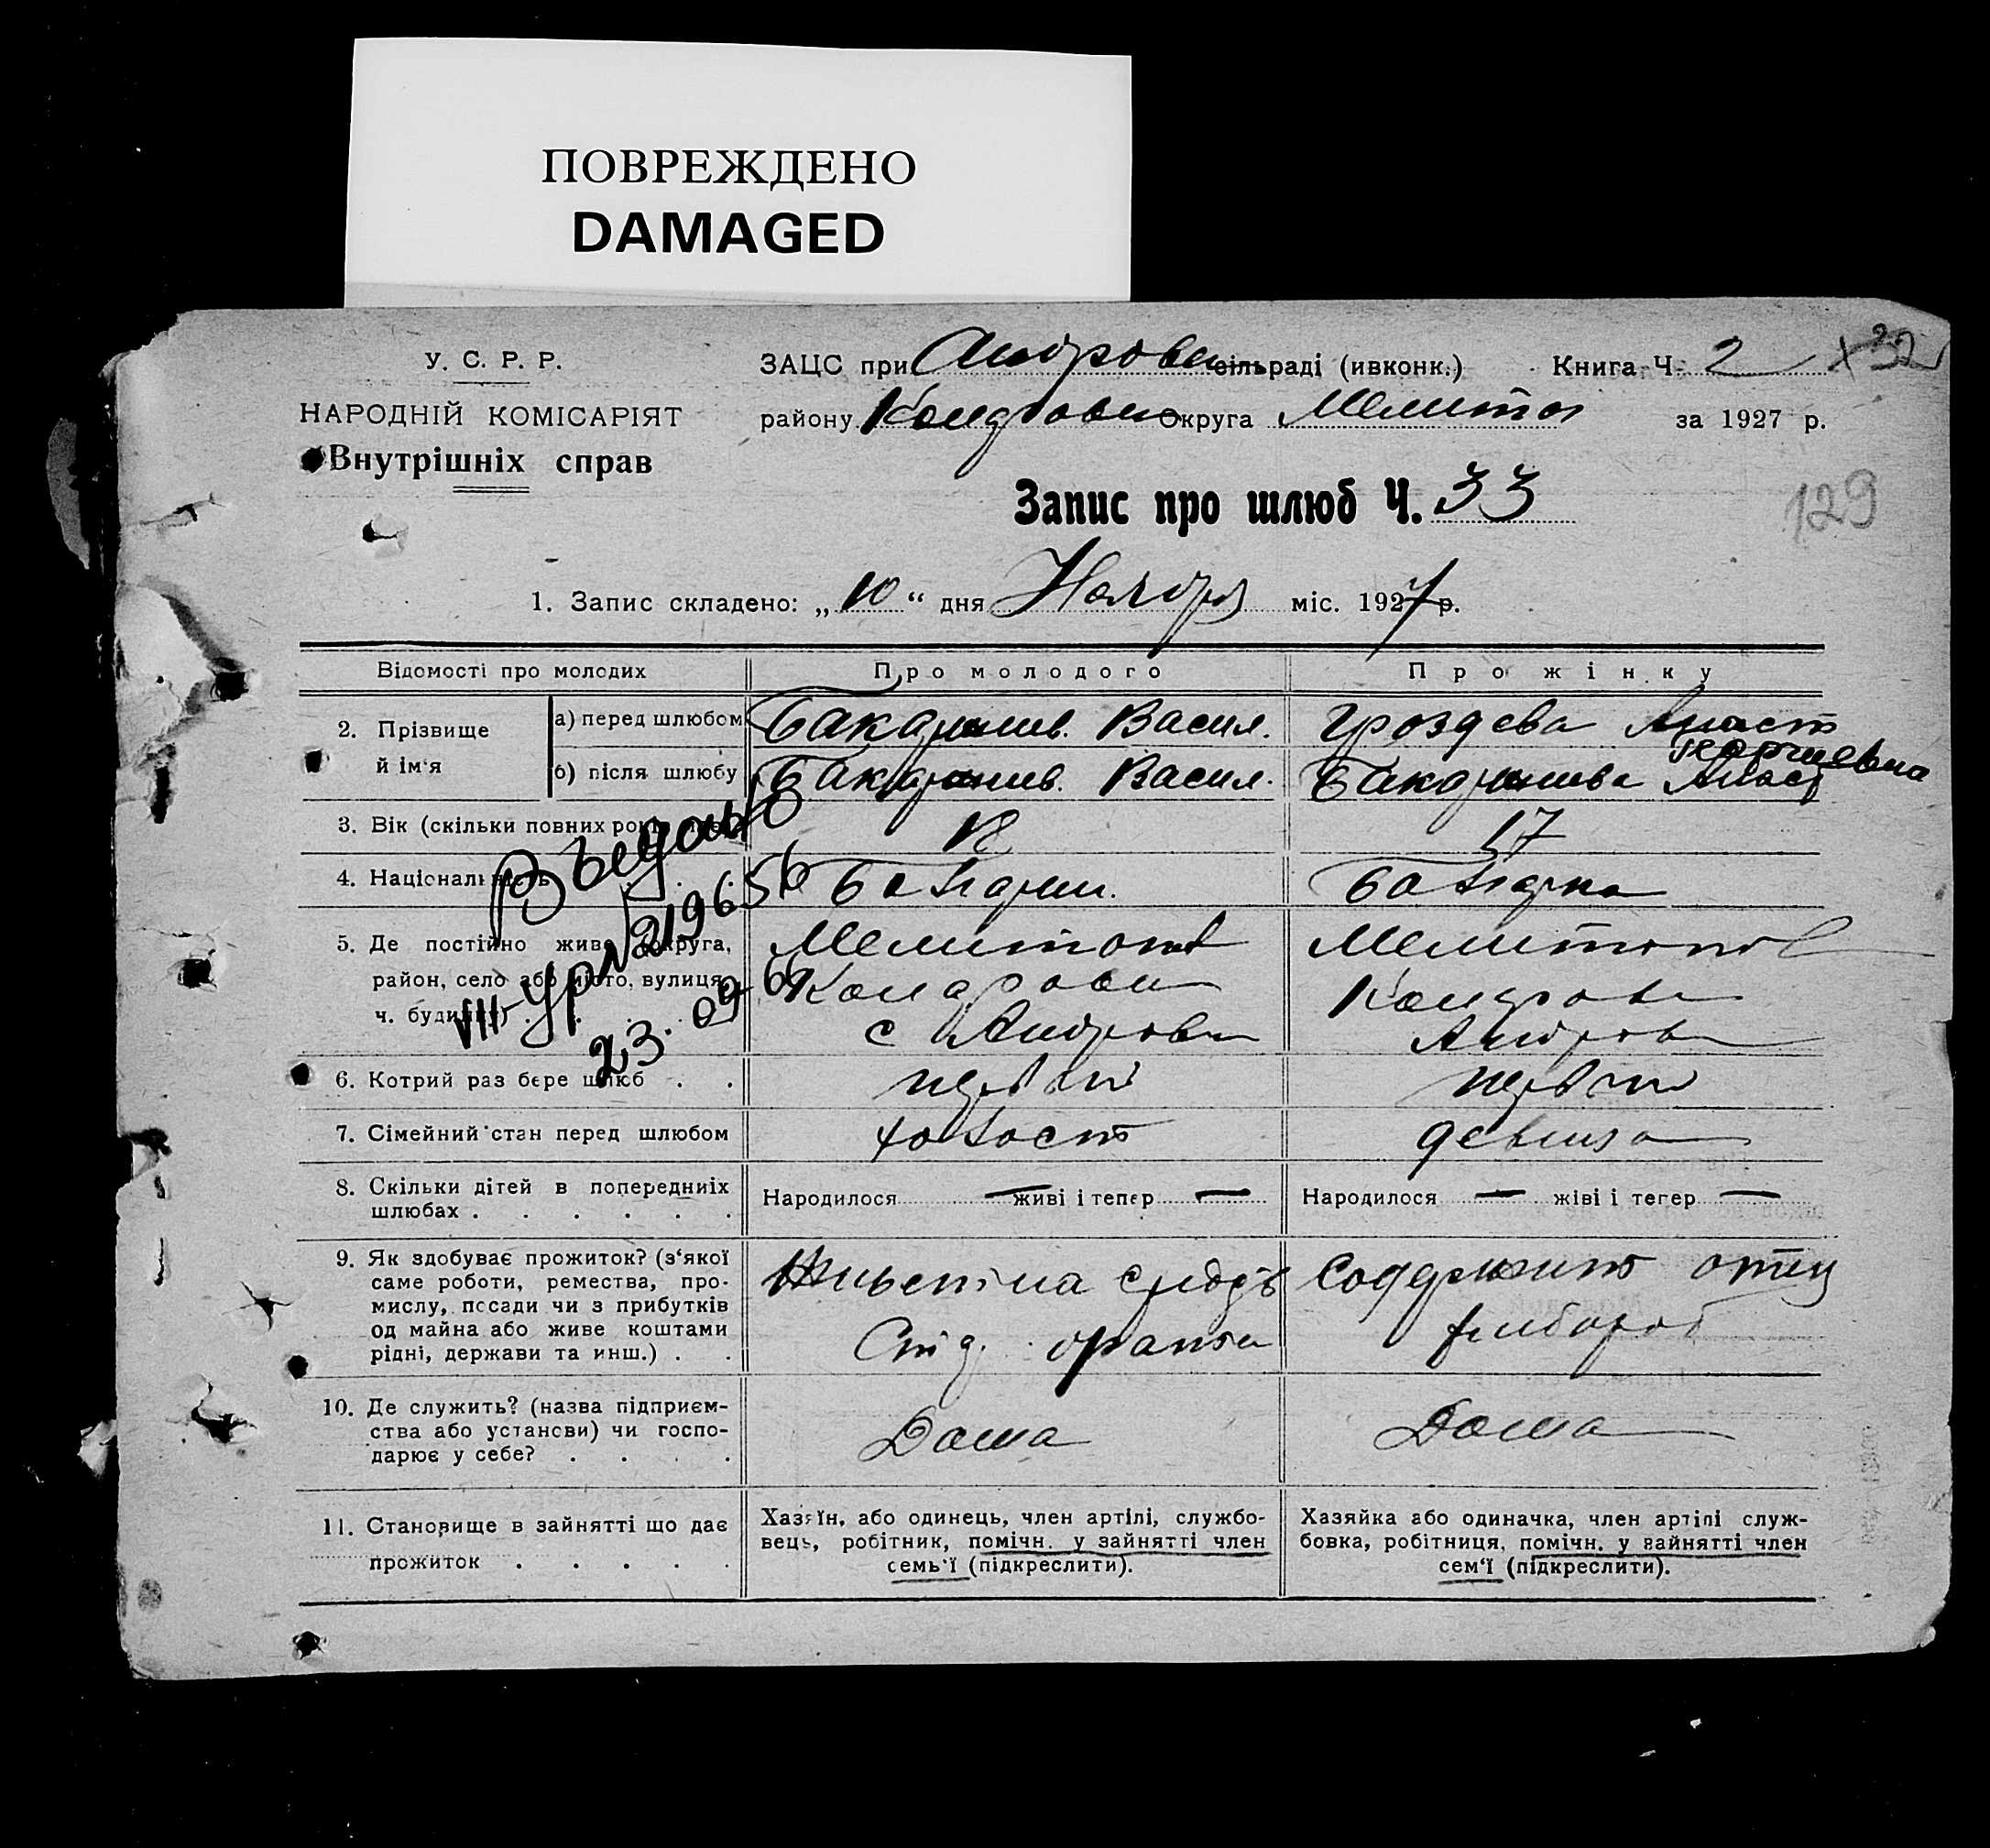 ПОВРЕЖДЕНО
DAMAGED
У. С. Р. Р.
НАРОДНІЙ КОМІСАРІЯТ
Внутрішніх справ
ЗАЦС при Андровк сільраді (ивконк.) Книга Ч. 2
32
району Округа Мелитоп за 1927 р.
Запис про шлюб Ч. 33
129
1. Запис складено: „10“ дня Ноября міс. 1927 р.
Відомості про молодих
Про молодого
Про жінку
2. Прізвище й ім'я
а) перед шлюбом
Васил.
Гроздева Анаст
Георгиевна
б) після шлюбу
Васил.
Анаст
3. Вік (скільки повних
18
17
4. Національність
Болгарин.
Болгарка
5. Де постійно живе (округа,
район, село або місто, вулиця,
ч. будинку)
Мелитопол
с Андровк
Мелитопол
Андровк
6. Котрий раз бере шлюб . .
первый
первый
7. Сімейний стан перед шлюбом
холост
девица
8. Скільки дітей в попередніїх
шлюбах . . . . . .
Народилося — живі і тепер —
Народилося — жіві і тегер —
9. Як здобуває прожиток? (з'якої
саме роботи, ремества, про-
мислу, посади чи з прибутків
од майна або живе коштами
рідні, держави та инш.) . .
на
содержит отец
хлебороб
10. Де служить? (назва підприєм-
ства або установи) чи госпо-
дарює у себе? . . . .
Дома
Дома
11. Становище в зайнятті що дає
прожиток . . . . .
Хазяїн, або одинець, член артілі, службо-
вець, робітник, помічн. у зайнятті член
семь'ї (підкреслити).
Хазяйка або одиначка, член артілі служ-
бовка, робітниця, помічн. у зайнятті член
сем'ї (підкреслити).
Выдано
VIII-УР № 219656
23. 09 66